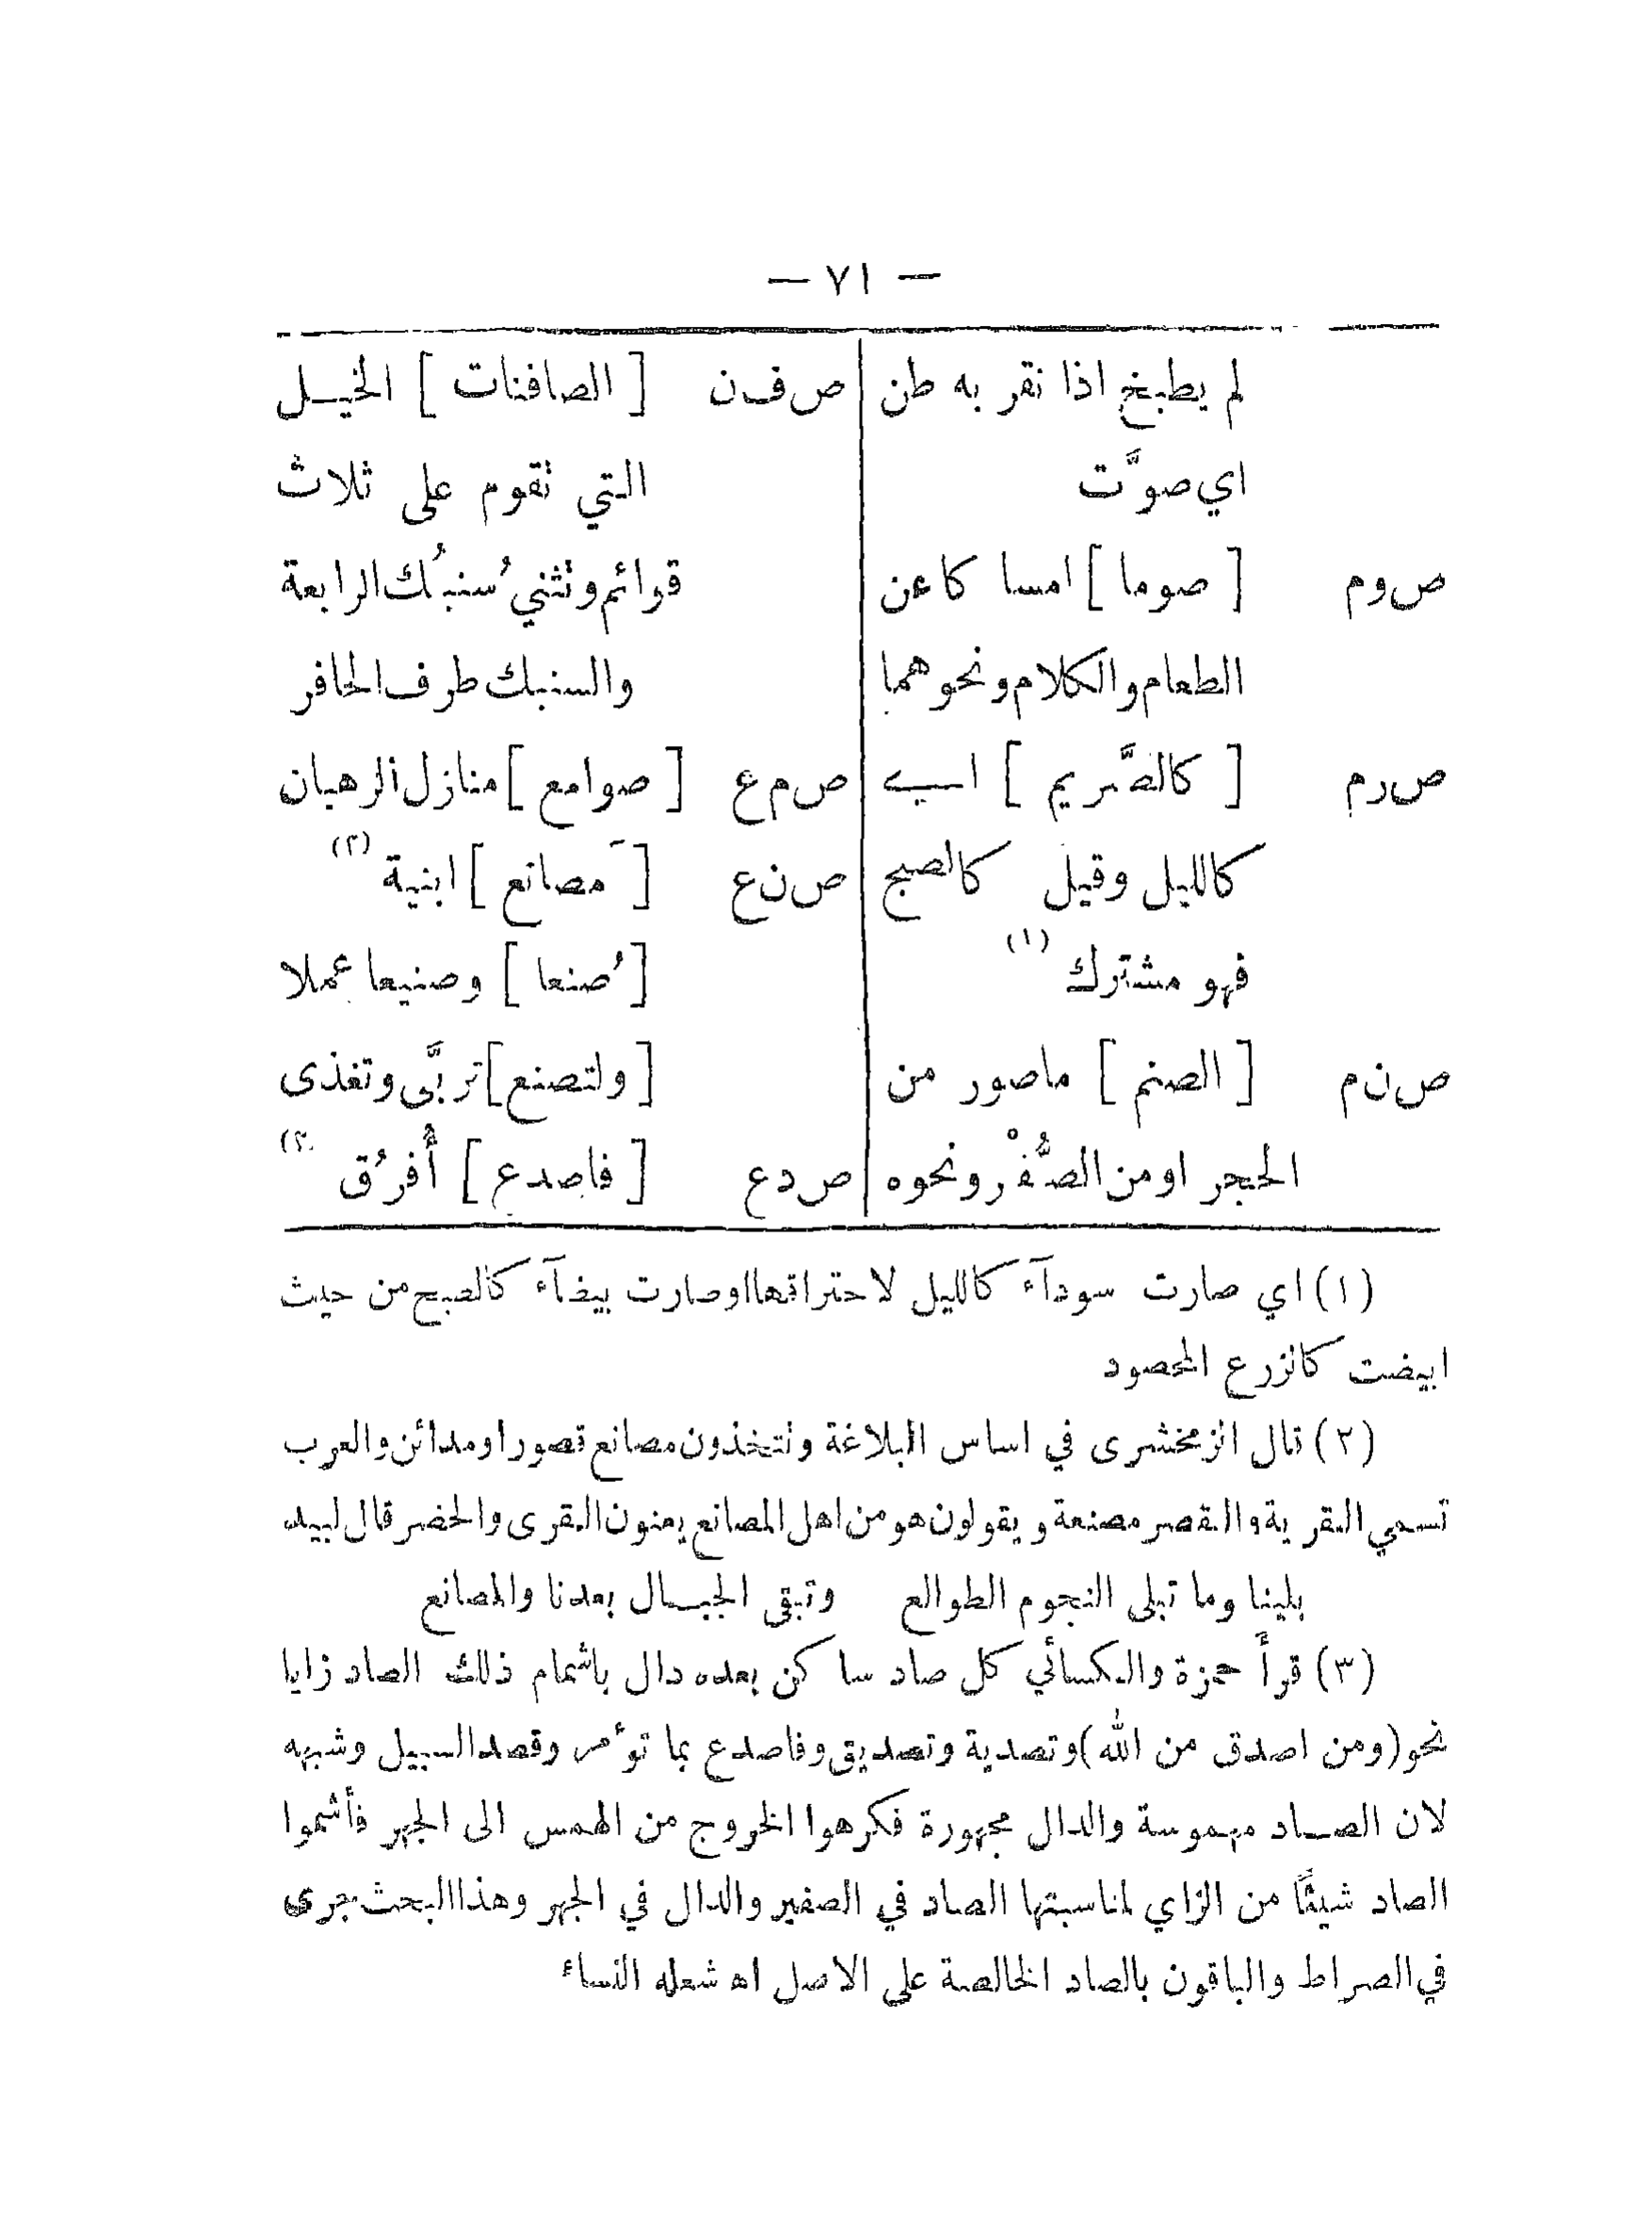 — ٧١ —
لم يطبخ اذا نقر به طن
اي صوَّت
ص وم [ صوما ] امساكا عن
الطعام والكلام ونحوهما
ص رم [ كالصَّريم ] اي
كالليل وقيل كالصبح
فهو مشترك (١)
ص ن م [ الصنم ] ماصور من
الحجر او من الصُّفْر ونحوه
ص ف ن [ الصافنات ] الخيل
التي تقوم على ثلاث
قوائم وتثني سُنبُك الرابعة
والسنبك طرف الحافر
ص م ع [ صوامع ] منازل الرهبان
ص ن ع [ مَصانع ] ابنية (٢)
[ صُنعا ] وصنيعا عملا
[ ولتصنع ] تربَّى وتغذى
ص دع [ فاصدع ] أُفرُق (٣)
(١) اي صارت سودآء كالليل لاحتراقها او صارت بيضآء كالصبح من حيث
ابيضت كالزرع المحصود
(٢) قال الزمخشرى في اساس البلاغة وتتخذون مصانع قصورا ومدائن والعرب
تسمي القرية والقصر مصنعة ويقولون هو من اهل المصانع يعنون القرى والحضر قال لبيد
بلينا وما تبلى النجوم الطوالع وتبقى الجبال بعدنا والمصانع
(٣) قرأ حمزة والكسائي كل صاد ساكن بعده دال باشمام ذلك الصاد زايا
نحو (ومن اصدق من الله) وتصدية وتصديق وفاصدع بما تؤمر وقصد السبيل وشبهه
لان الصاد مهموسة والدال مجهورة فكرهوا الخروج من الهمس الى الجهر فأشموا
الصاد شيئًا من الزاي لمناسبتها الصاد في الصفير والدال في الجهر وهذا البحث جرى
في الصراط والباقون بالصاد الخالصة على الاصل اه شعله النساء